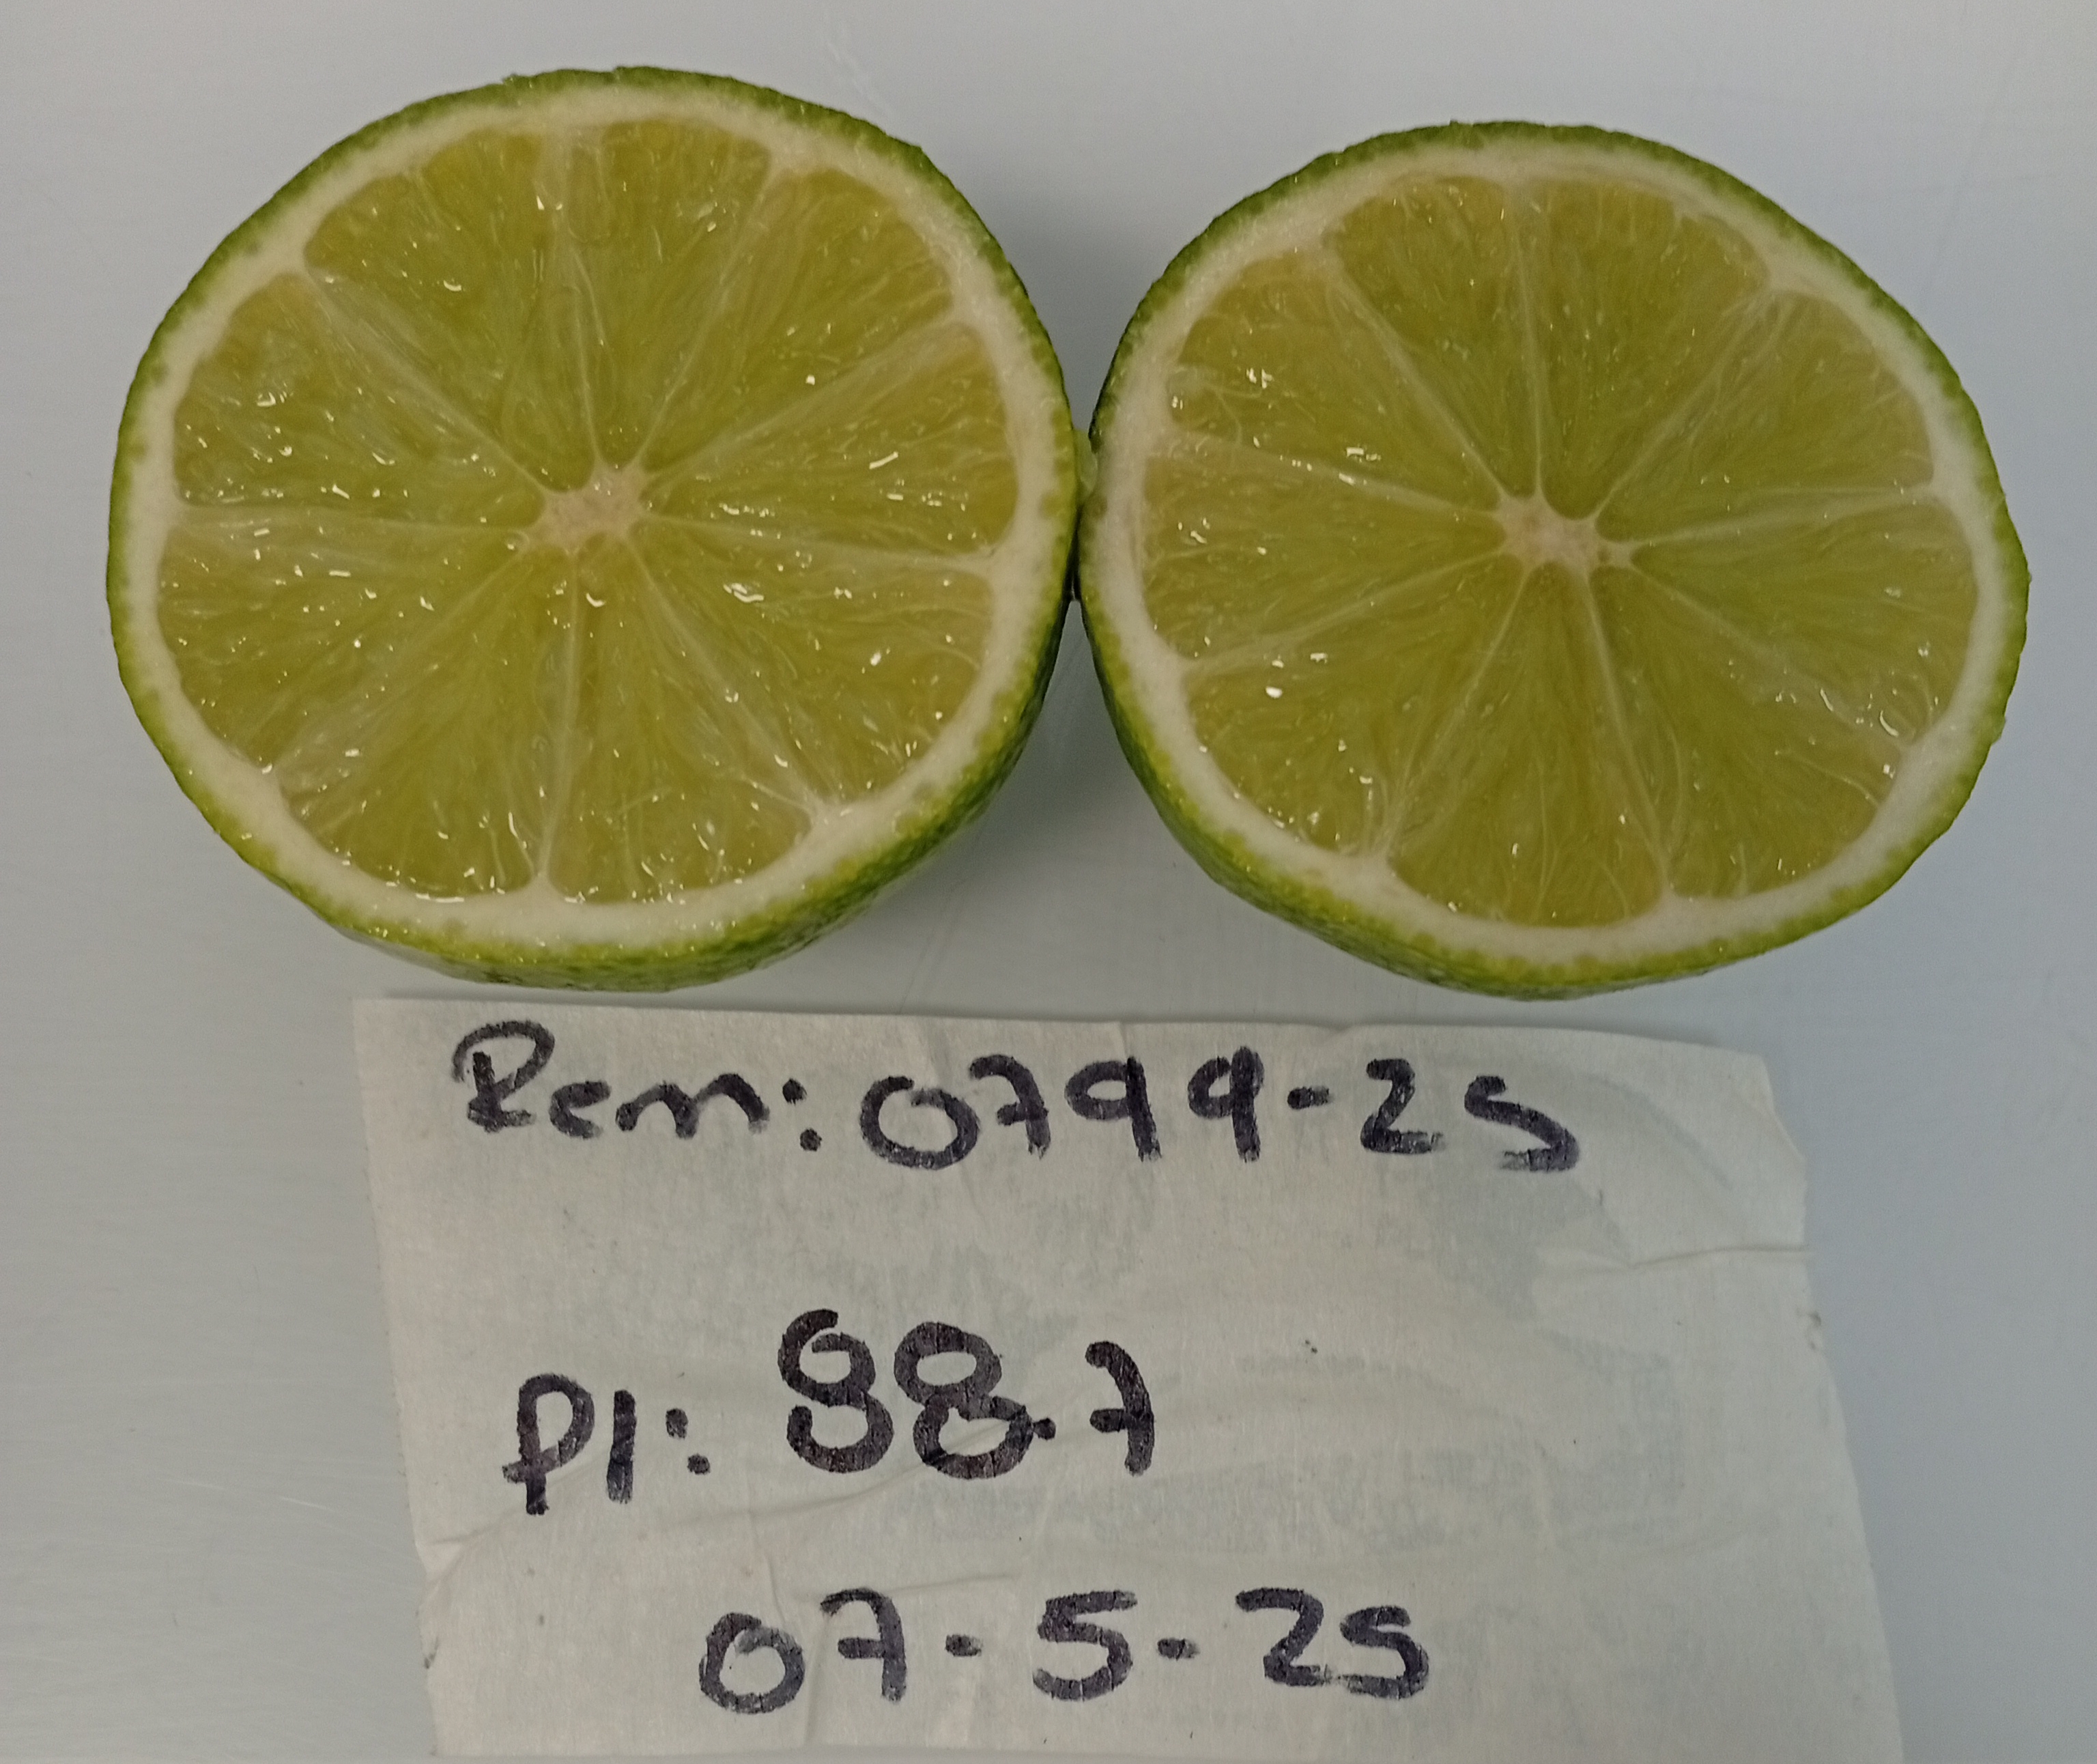 Rem: 0799-25
P1: 88.7
07-5-25